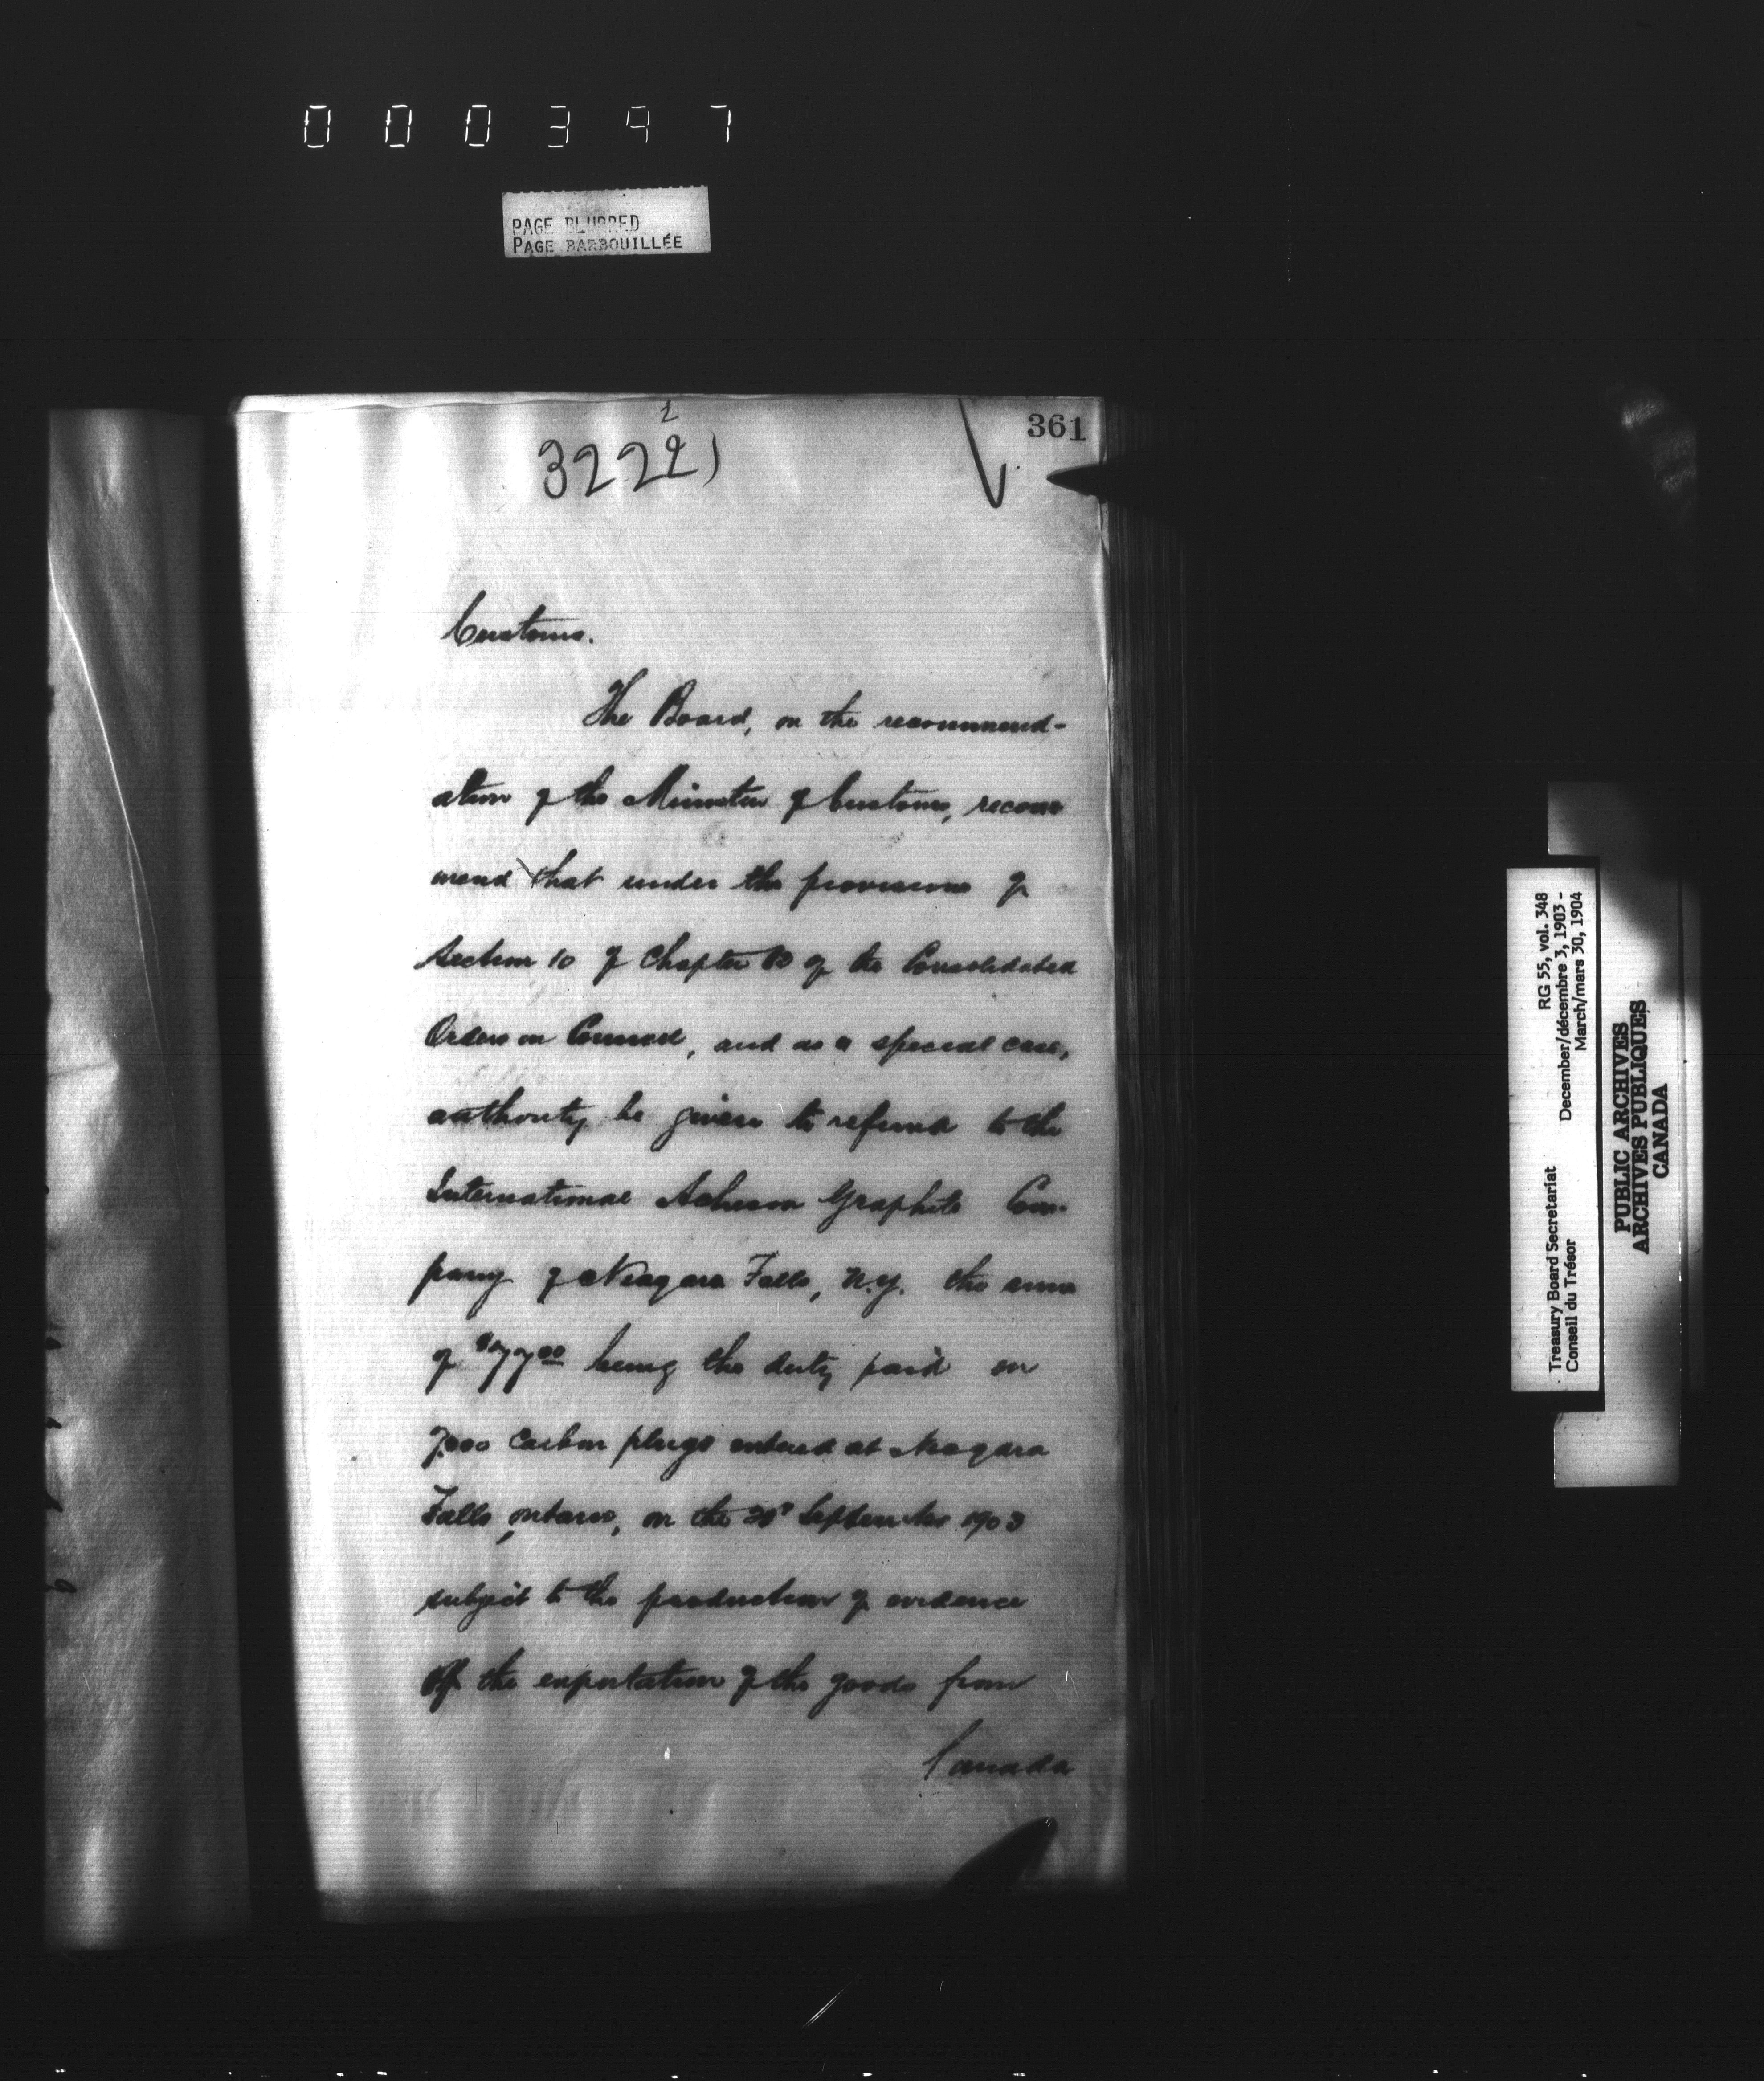 000397
PAGE BLURRED
PAGE BARBOUILLÉE
361
3222)
Customs.
The Board, on the recommend-
ation of the Minister of Customs, recom
mend that under the provisions of
Section 10 of Chapter of the Consolidated
Orders in Council, and as a special case,
authority be given to refund to the
International Acheson Graphite Com-
pany of Niagara Falls, N.Y. the sum
of $77.00 being the duty paid on
7,000 Carbon plugs entered at Niagara
Falls, Ontario, on the September 1903
subject to the production of evidence
of the exportation of the goods from
Canada
Treasury Board Secretariat RG 55, vol. 348
Conseil du Trésor December/décembre 3, 1903 -
March/mars 30, 1904
PUBLIC ARCHIVES
ARCHIVES PUBLIQUES
CANADA